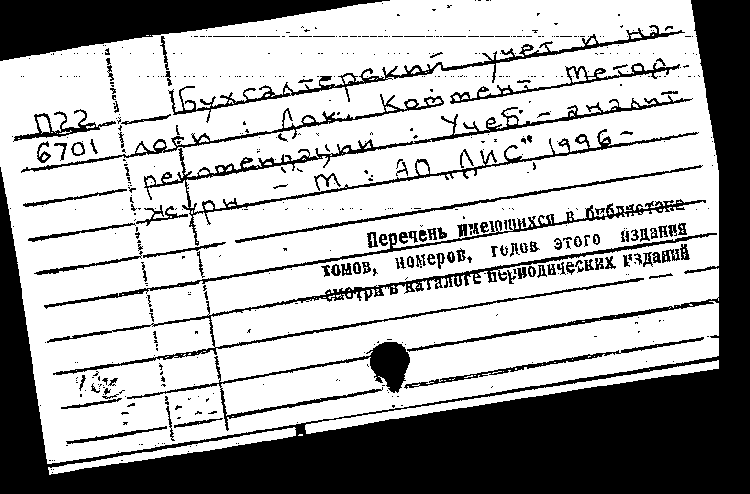 Бухгалтерский учет и на-
П22 логи : Док. Коммент Метод
6701 рекомендации : Учеб.- аналит
журн. - М. : АО "ДИС", 1996-
Перечень имеющихся в библиотеке
томов, номеров, годов этого издания
смотри в каталоге периодических изданий